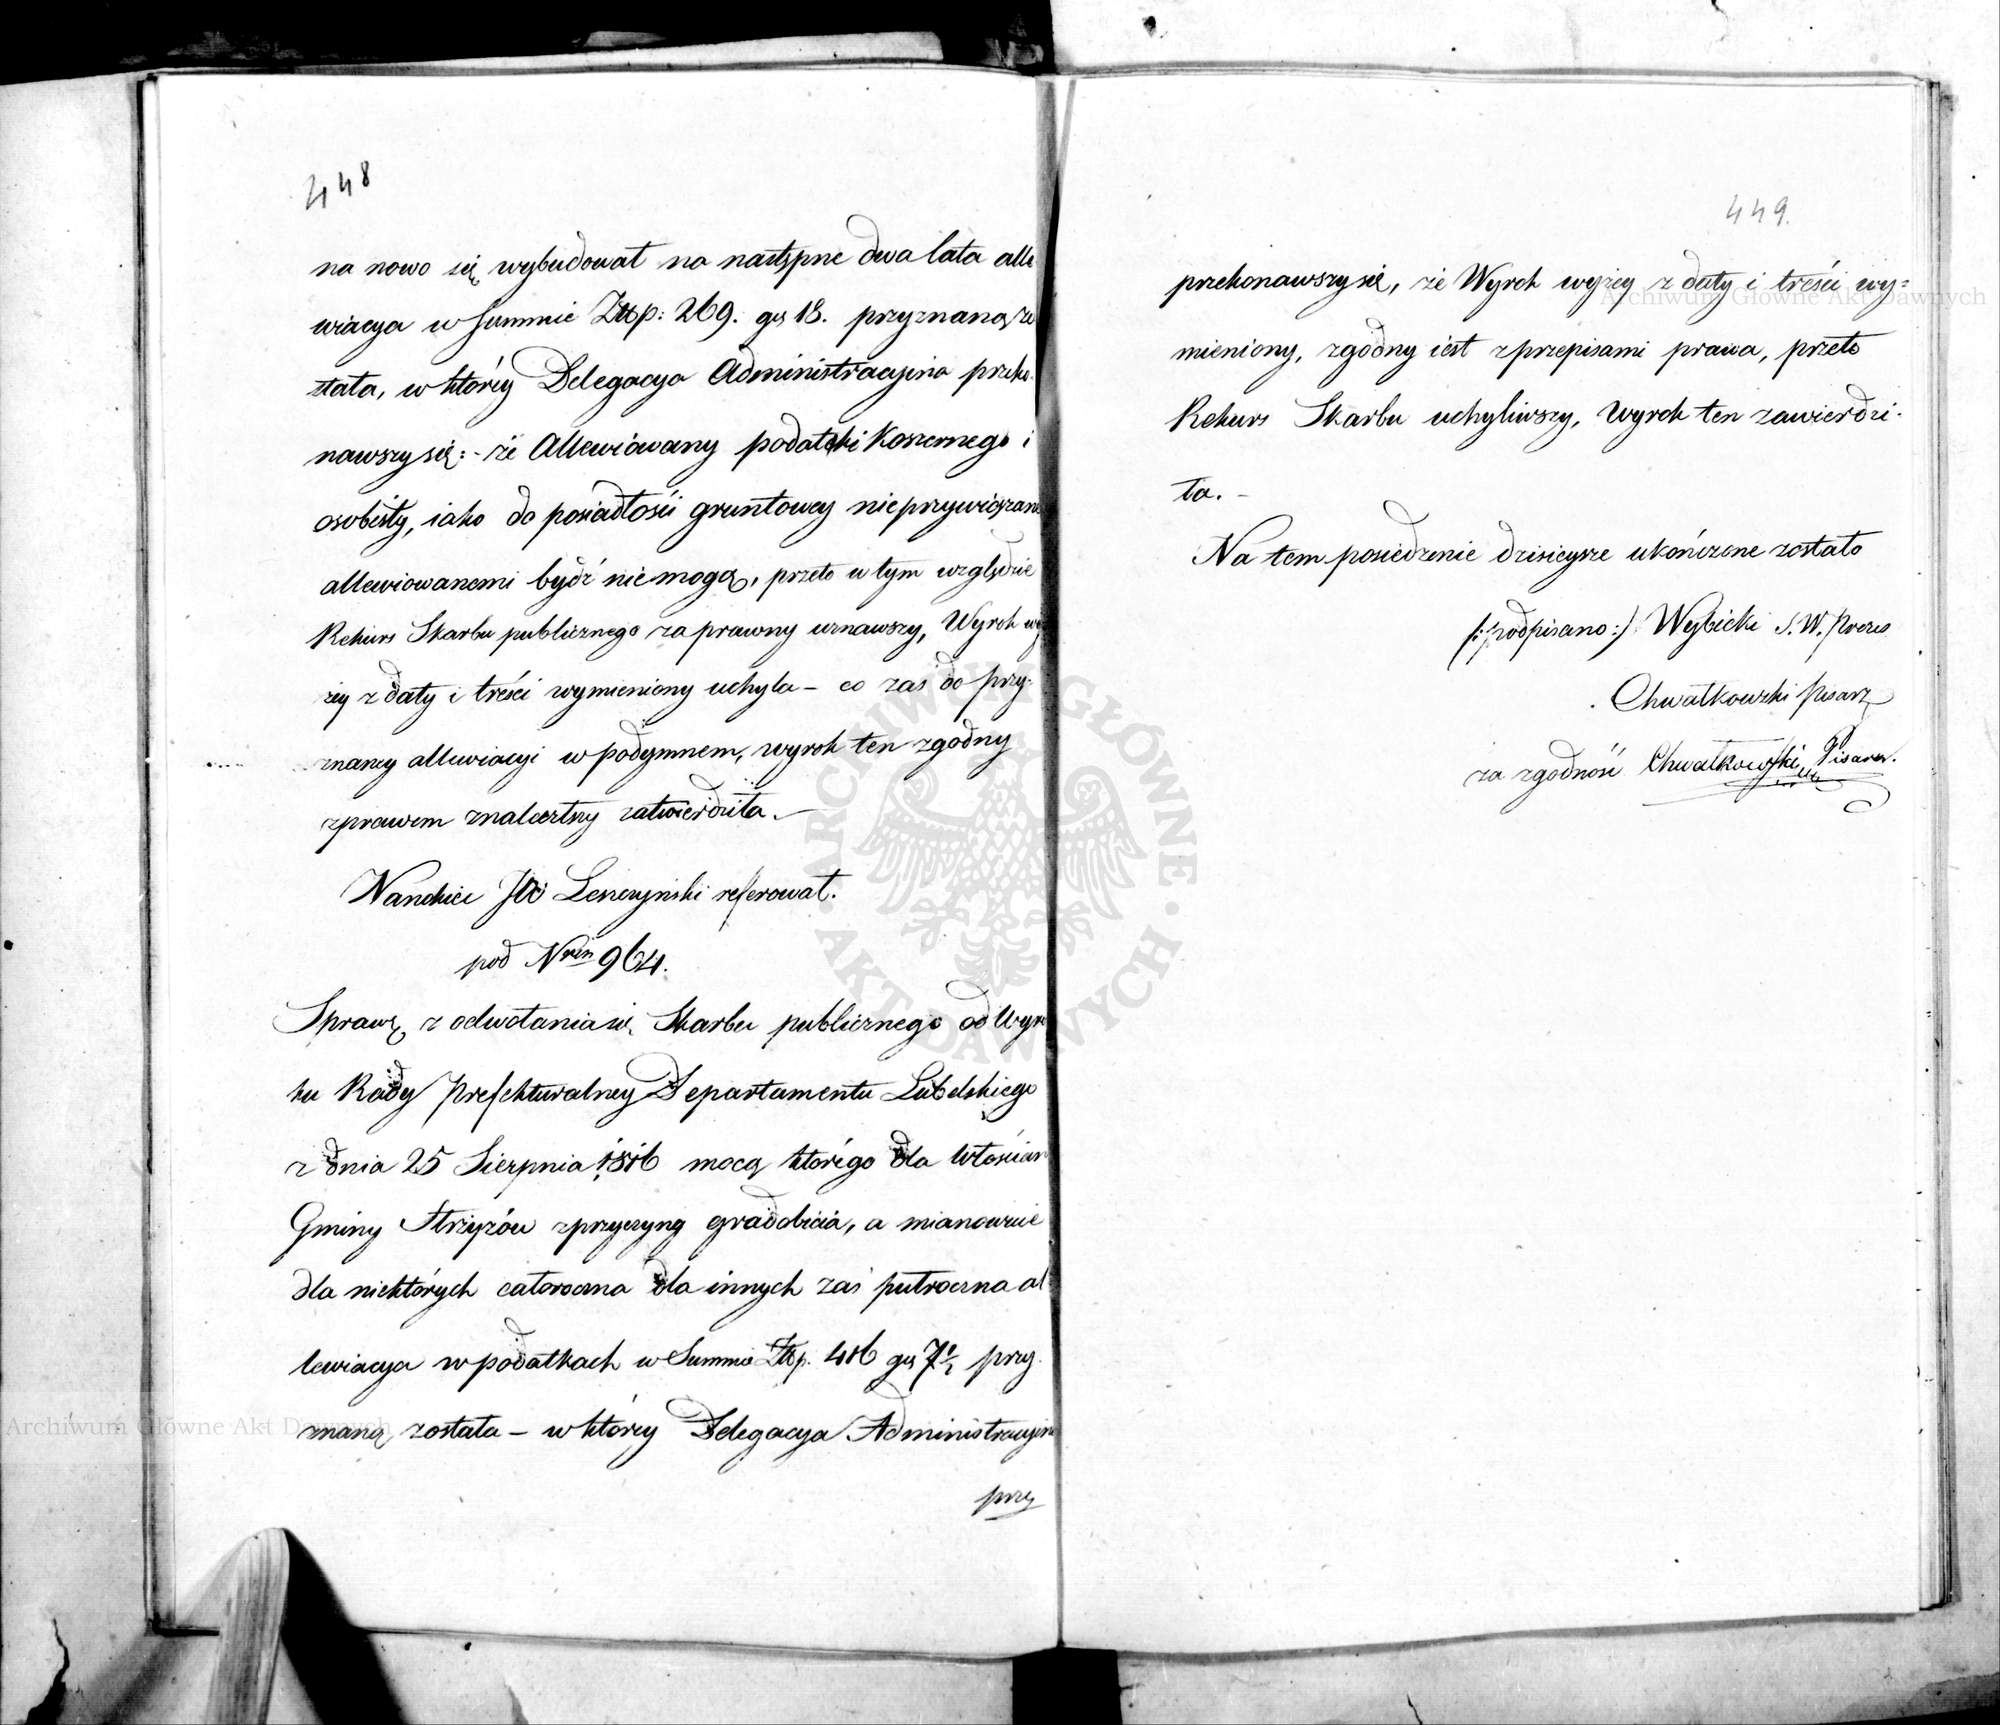 448
na nowo się wybudował na następne dwa lata alle
wiacya w Summie Złłp: 269. gr 18. przyznaną zo
stała, w którey Delegacya Administracyina przeko-
nawszy się: - że Allewiowany podatki Koszernego i
osobisty, iako do posiadłości gruntowey nieprzywiązane
allewiowanemi bydź nie mogą, przeto w tym względzie
Rekurs Skarbu publicznego za prawny uznawszy, Wyrok wy
żey z daty i treści wymieniony uchyla – co zaś do przy-
znaney allewiacyi w podymnem, wyrok ten zgodny
z prawem znaleztny zatwierdziła. –
Nanckiei JW Leszczyński referował.
pod Nrem 964.
Sprawę z odwołania się Skarbu publicznego od Wyro
ku Rady Prefekturalney Departamentu Lubelskiego
z dnia 25 Sierpnia 1816 mocą którego dla Włościan
Gminy Strzyżów z przyczyny gradobicia, a mianowicie
dla niektórych całoroczna dla innych zaś pułroczna al
lewiacya w podatkach w Summie Złłp. 416 gr 7½ przy-
znaną została – w którey Delegacya Administracyina
przy
449.
przekonawszy się, że Wyrok wyżey z daty i treści wy=
mieniony, zgodny iest z przepisami prawa, przeto
Rekurs Skarbu uchyliwszy, Wyrok ten zawierdzi-
ła. –
Na tem posiedzenie dzisieysze ukończone zostało
/: podpisano :/ Wybicki S. W. Prezes
Chwałkowski Pisarz
za zgodność Chwałkowski Pisarz.
Archiwum Główne Akt Dawnych
Archiwum Główne Akt Dawnych
· ARCHIWUM GŁÓWNE · AKT DAWNYCH